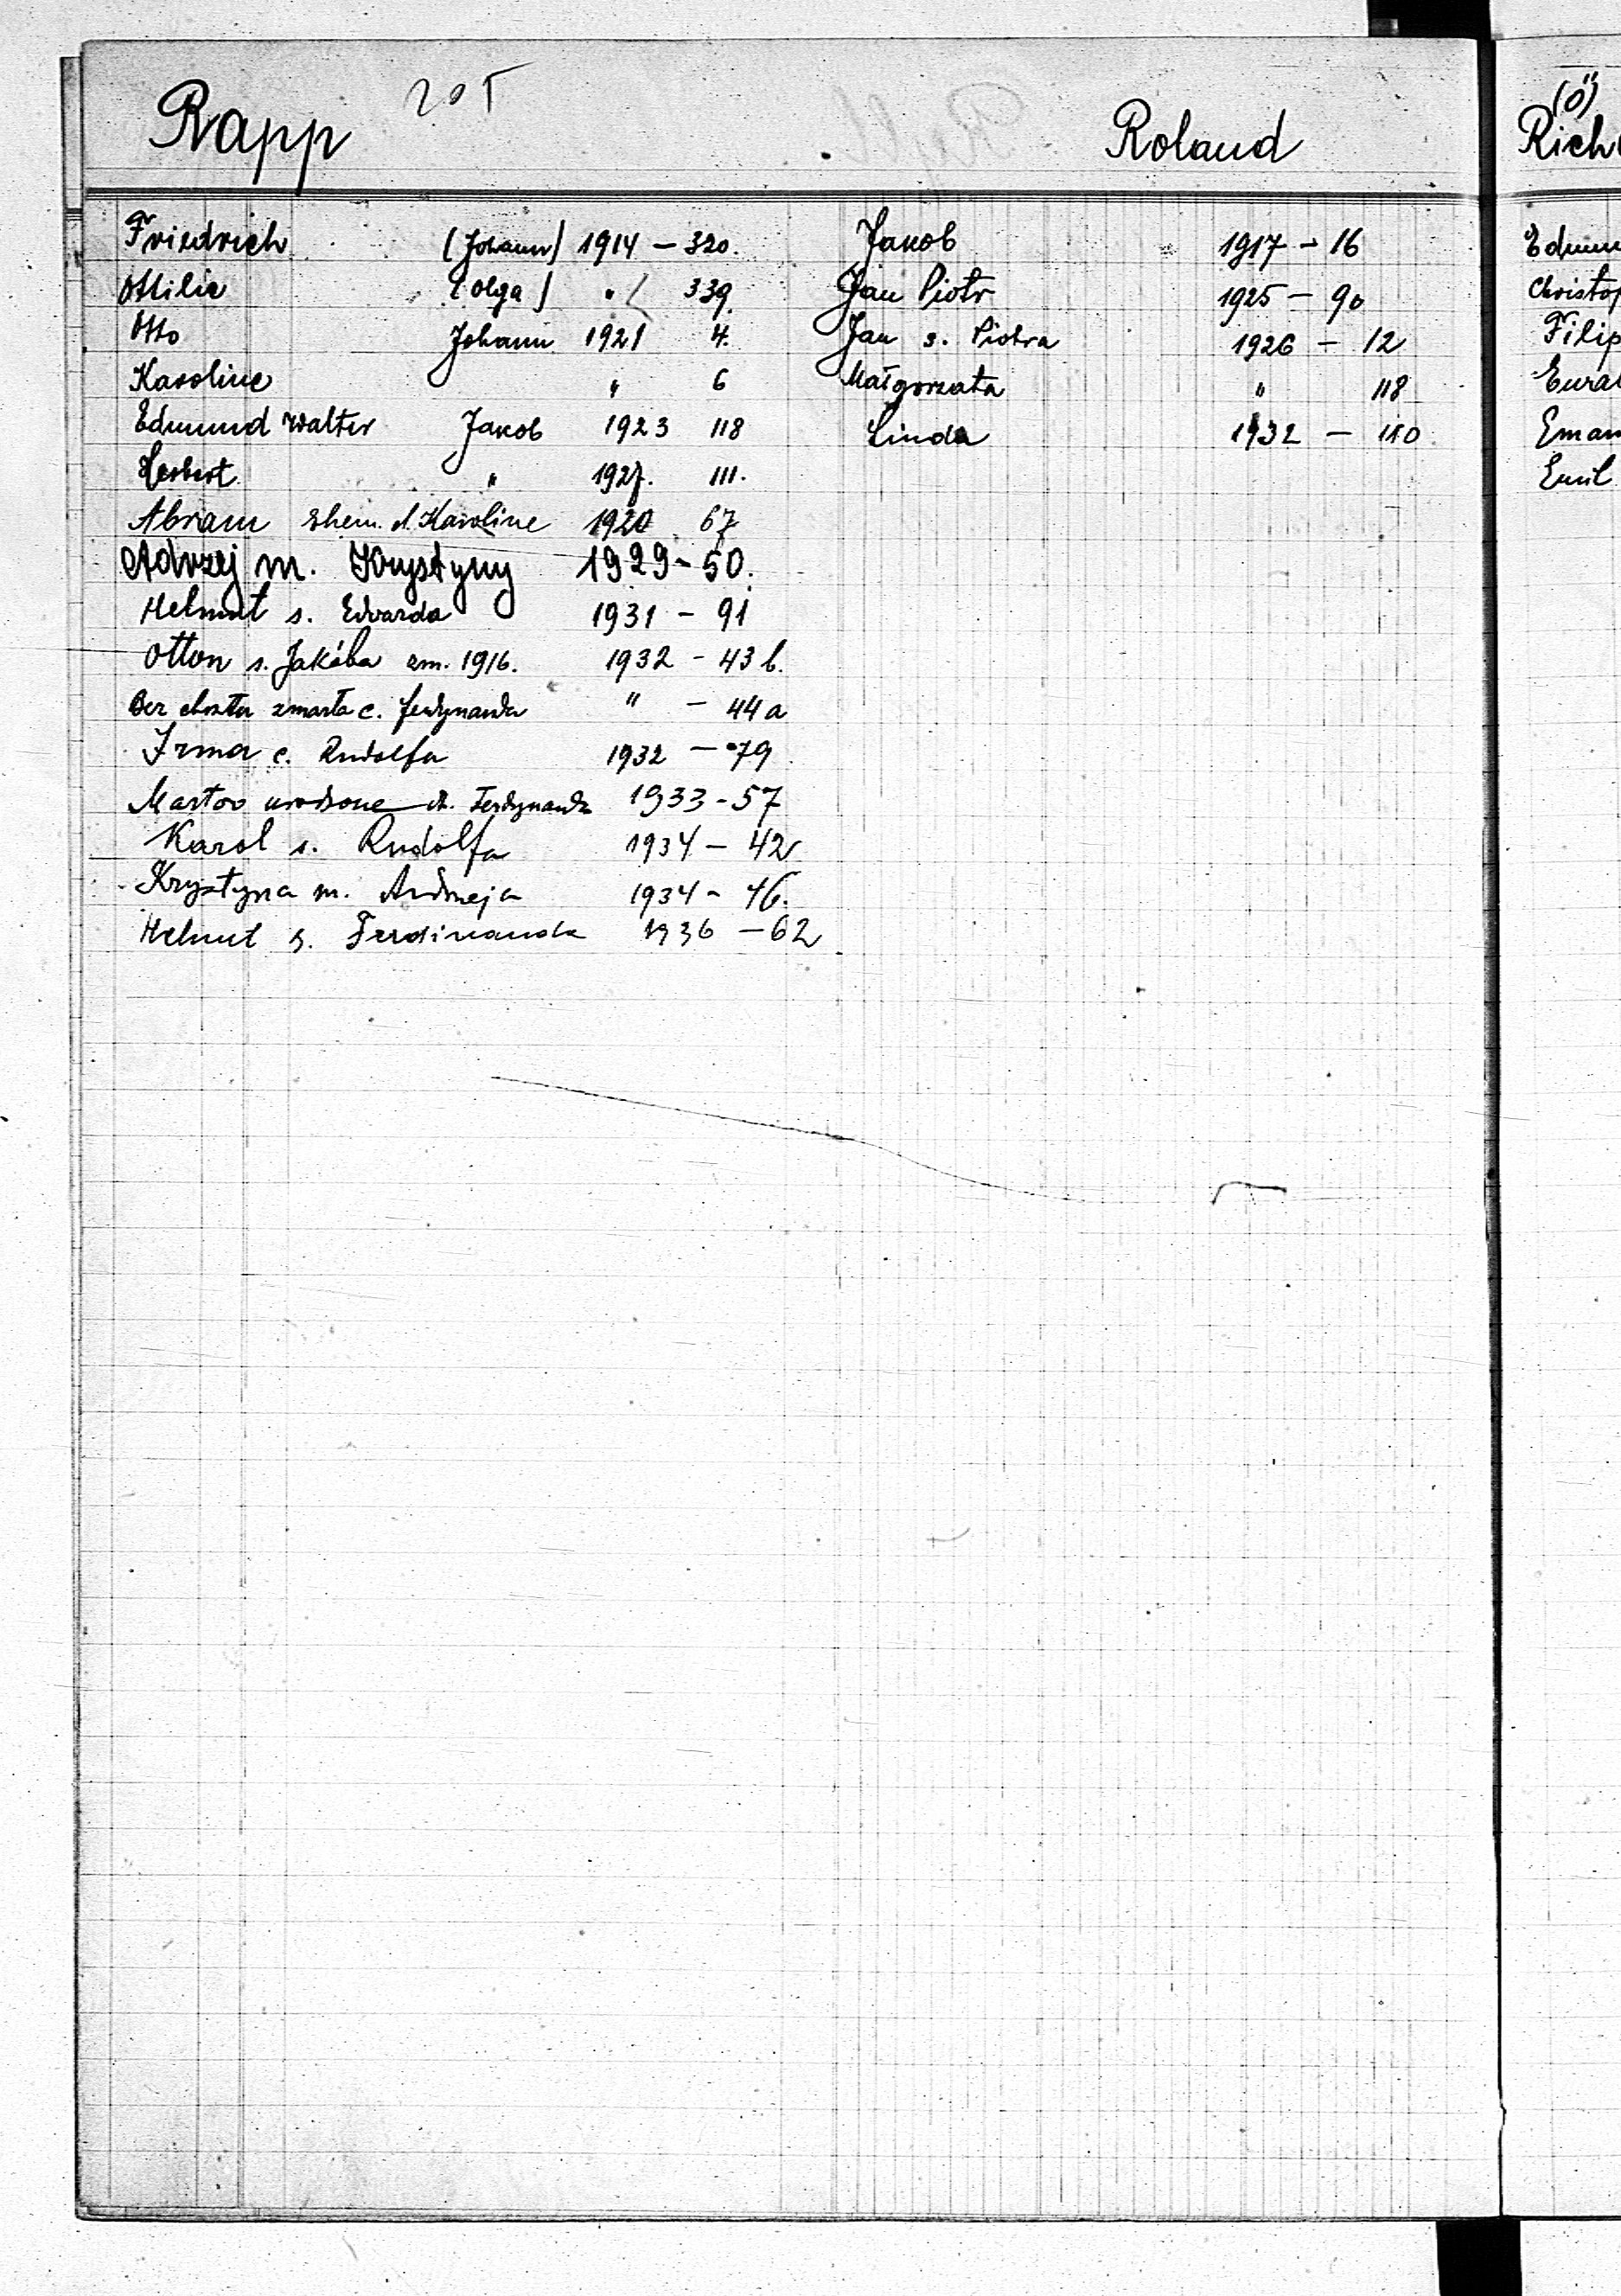 Rapp 205
Friedrich (Johann) 1914 – 320.
Ottilie (Olga) " 339
Otto Johann 1921 4.
Karoline " 6
Edmund Walter Jakob 1923 118
Herbert " 1927. 111.
Abram Ehem. d. Karoline 1920 67
Adrzej m. Krystyny 1929 – 50.
Helmut s. Edwarda 1931 – 91
Otton s. Jakóba zm. 1916. 1932 – 43 b.
Bez chrztu zmarła c. Ferdynanda " – 44 a
Irma c. Rudolfa 1932 – 79
Martwo urodzone dz. Ferdynanda 1933 – 57
Karol s. Rudolfa 1934 – 42
Krystyna m. Andrzeja 1934 – 46.
Helmut s. Ferdinanda 1936 – 62
Roland
Jakob 1917 – 16
Jan Piotr 1925 – 90
Jan s. Piotra 1926 – 12
Małgorzata " 118
Linda 1932 – 110
(ö)
Rich
Edmun
Christop
Filip
Eman
Emil